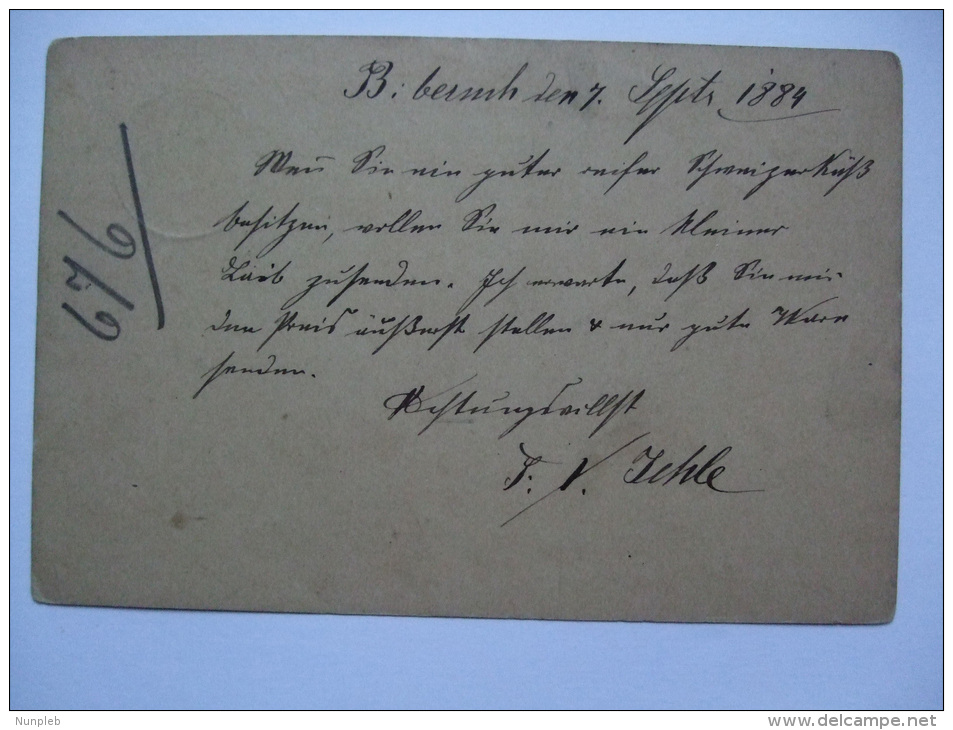 Biberach den 7. Septr 1884
Wenn Sie ein guter reifer Schweizerkäß
besitzen, wollen Sie mir ein kleiner
Laib zusenden. Ich erwarte, daß Sie mir
den Preis äußerst stellen & nur gute Ware
senden.
Achtungsvollst
Jehle
676
Nunpleb
www.delcampe.net